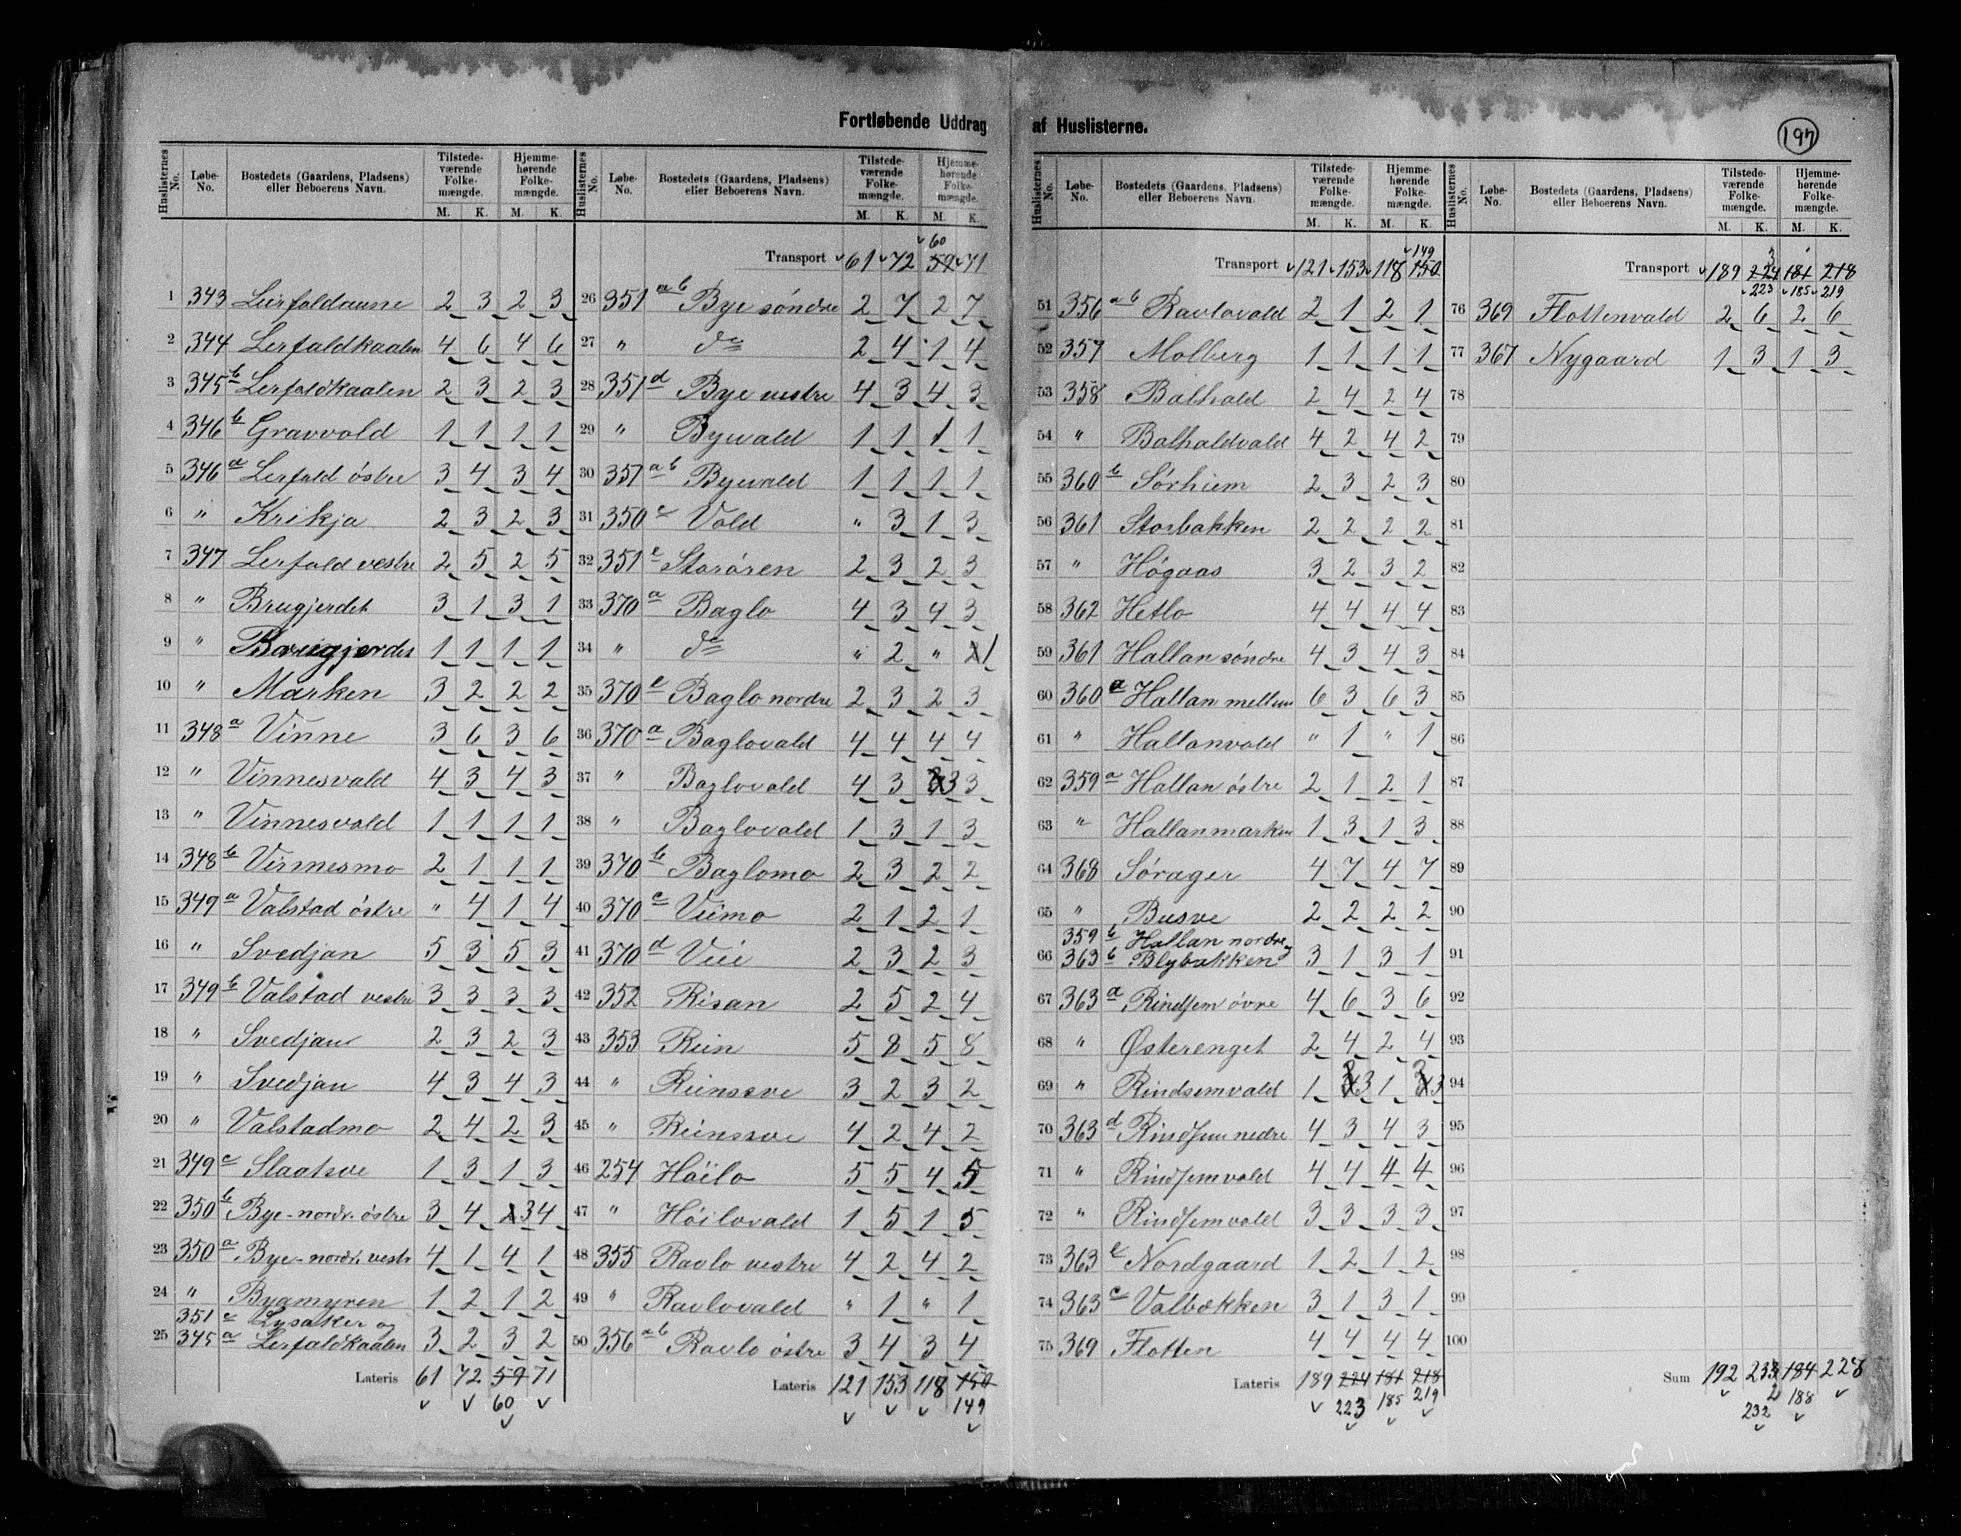 Fortløbende Uddrag af Huslisterne.
197
Huslisternes No. Løbe-No. Bostedets (Gaardens, Pladsens) eller Beboerens Navn. Tilstedeværende Folkemængde. M. K. Hjemmehørende Folkemængde. M. K.
1 343 Leirfaldaune 2 3 2 3
2 344 Lerfaldkaalen 4 6 4 6
3 345 b Lerfaldkaalen 2 3 2 3
4 346 b Gravvold 1 1 1 1
5 346 a Lerfald östre 3 4 3 4
6 " Krikja 2 3 2 3
7 347 Lerfald vestre 2 5 2 5
8 " Brugjerdet 3 1 3 1
9 " Brugjerdet 1 1 1 1
10 " Marken 3 2 2 2
11 348 a Vinne 3 6 3 6
12 " Vinnesvald 4 3 4 3
13 " Vinnesvald 1 1 1 1
14 348 b Vinnesmo 2 1 1 1
15 349 a Valstad östre " 4 1 4
16 " Svedjan 5 3 5 3
17 349 b Valstad vestre 3 3 3 3
18 " Svedjan 2 3 2 3
19 " Svedjan 4 3 4 3
20 " Valstadmo 2 4 2 3
21 349 c Slaatsve 1 3 1 3
22 350 b Bye-nordr. östre 3 4 3 4
23 350 a Bye-nordr. vestr 4 1 4 1
24 " Byamyren 1 2 1 2
351 a Lysaker og
25 345 a Lerfaldkaalen 3 2 3 2
Lateris 61 72 59 71
60
Huslisternes No. Løbe-No. Bostedets (Gaardens, Pladsens) eller Beboerens Navn. Tilstedeværende Folkemængde. M. K. Hjemmehørende Folkemængde. M. K.
60
Transport 61 72 59 71
26 351 a b Bye søndre 2 7 2 7
27 " do 2 4 1 4
28 351 d Bye vestre 4 3 4 3
29 " Byvald 1 1 1 1
30 351 a b Byvald 1 1 1 1
31 350 c Vold " 3 1 3
32 351 e Storøren 2 3 2 3
33 370 a Baglo 4 3 4 3
34 " do " 2 " 1
35 370 e Baglo nordre 2 3 2 3
36 370 a Baglovald 4 4 4 4
37 " Baglovald 4 3 3 3
38 " Baglovald 1 3 1 3
39 370 b Baglomo 2 3 2 2
40 370 c Veimo 2 1 2 1
41 370 d Veie 2 3 2 3
42 352 Risan 2 5 2 4
43 353 Rein 5 8 5 8
44 " Reinssve 3 2 3 2
45 " Reinssve 4 2 4 2
46 254 Höilo 5 5 4 5
47 " Höilovald 1 5 1 5
48 355 Ravlo vestre 4 2 4 2
49 " Ravlovald " 1 " 1
50 356 a b Ravlo östre 3 4 3 4
Lateris 121 153 118 150
149
Huslisternes No. Løbe-No. Bostedets (Gaardens, Pladsens) eller Beboerens Navn. Tilstedeværende Folkemængde. M. K. Hjemmehørende Folkemængde. M. K.
149
Transport 121 153 118 150
51 356 a b Ravlovald 2 1 2 1
52 357 Molberg 1 1 1 1
53 358 Balhald 2 4 2 4
54 " Balhaldvald 4 2 4 2
55 360 b Sørhiem 2 3 2 3
56 361 Storbakken 2 2 2 2
57 " Høgaas 3 2 3 2
58 362 Hetlo 4 4 4 4
59 361 Hallan søndre 4 3 4 3
60 360 a Hallan mellem 6 3 6 3
61 " Hallanvald " 1 " 1
62 359 a Hallan östre 2 1 2 1
63 " Hallanmarken 1 3 1 3
64 368 Sørager 4 7 4 7
65 " Busve 2 2 2 2
359 b Hallan nordre og
66 363 b Blybakken 3 1 3 1
67 363 a Rindsem övre 4 6 3 6
68 " Østerenget 2 4 2 4
69 " Rindsemvald 1 3 1 3
70 363 d Rindsem nedre 4 3 4 3
71 " Rindsemvald 4 4 4 4
72 " Rindsemvald 3 3 3 3
73 363 e Nordgaard 1 2 1 2
74 363 c Valbækken 3 1 3 1
75 369 Flotten 4 4 4 4
Lateris 189 224 181 218
223 185 219
Huslisternes No. Løbe-No. Bostedets (Gaardens, Pladsens) eller Beboerens Navn. Tilstedeværende Folkemængde. M. K. Hjemmehørende Folkemængde. M. K.
Transport 189 224 181 218
223 185 219
76 369 Flottenvald 2 6 2 6
77 367 Nygaard 1 3 1 3
78
79
80
81
82
83
84
85
86
87
88
89
90
91
92
93
94
95
96
97
98
99
100
Sum 192 233 184 228
232 188